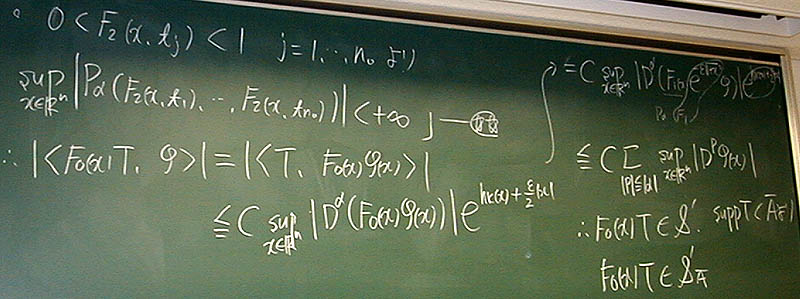 。 0 < F₂(x, t_j) < 1   j = 1, …, n₀ より
sup_{x∈ℝⁿ} |P_α(F₂(x, t₁), …, F₂(x, t_{n₀}))| < +∞
∴ |<F₀(x)T, φ>| = |<T, F₀(x)φ(x)>|
≦ C sup_{x∈ℝⁿ} |D^α(F₀(x)φ(x))| e^{h_K(x) + ε/2|x|}
≦ C sup_{x∈ℝⁿ} |D^α(F₁(x) φ)|
≦ C Σ_{|β|≦|α|} sup_{x∈ℝⁿ} |D^β φ(x)|
∴ F₀(x)T ∈ S′. supp T ⊂ A̅
F₀(x)T ∈ S′_A̅